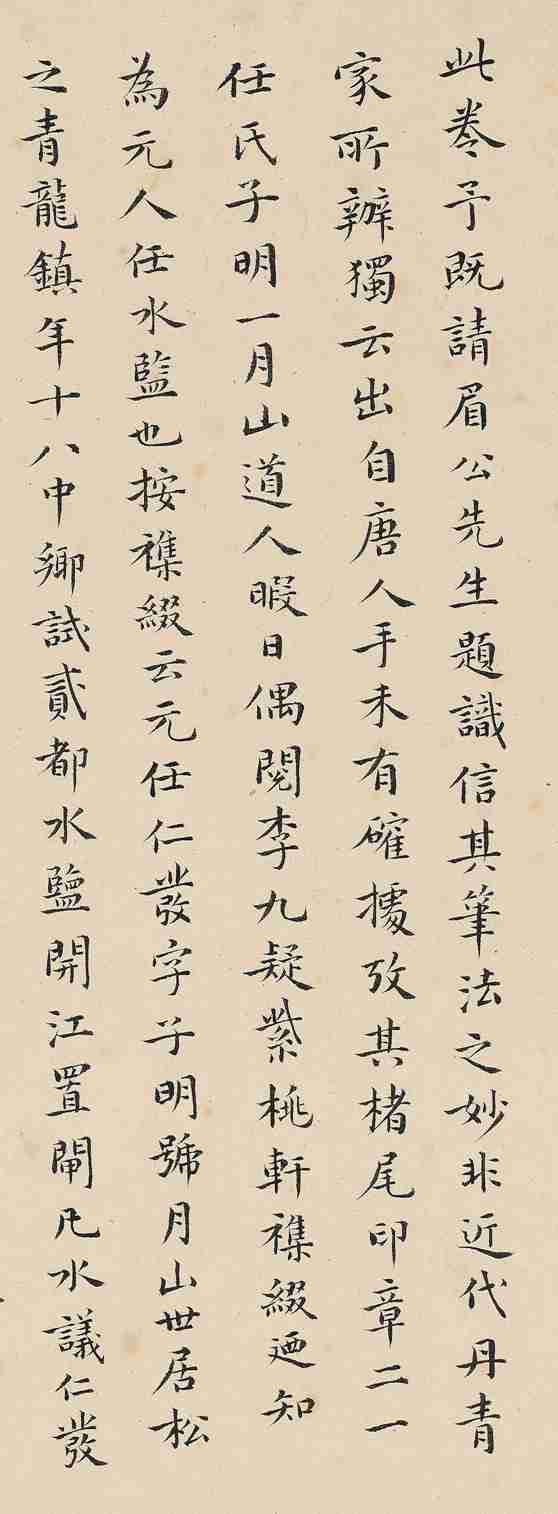 此卷予既請眉公先生題識信其筆法之妙非近代丹青
家所辦獨云出自唐人手未有確據攷其楮尾印章二一
任氏子明一月山道人暇日偶閱李九疑紫桃軒襍綴迺知
為元人任水監也按襍綴云元任仁發字子明號月山世居松
之青龍鎮年十八中鄉試貳都水監開江置閘凡水議仁發